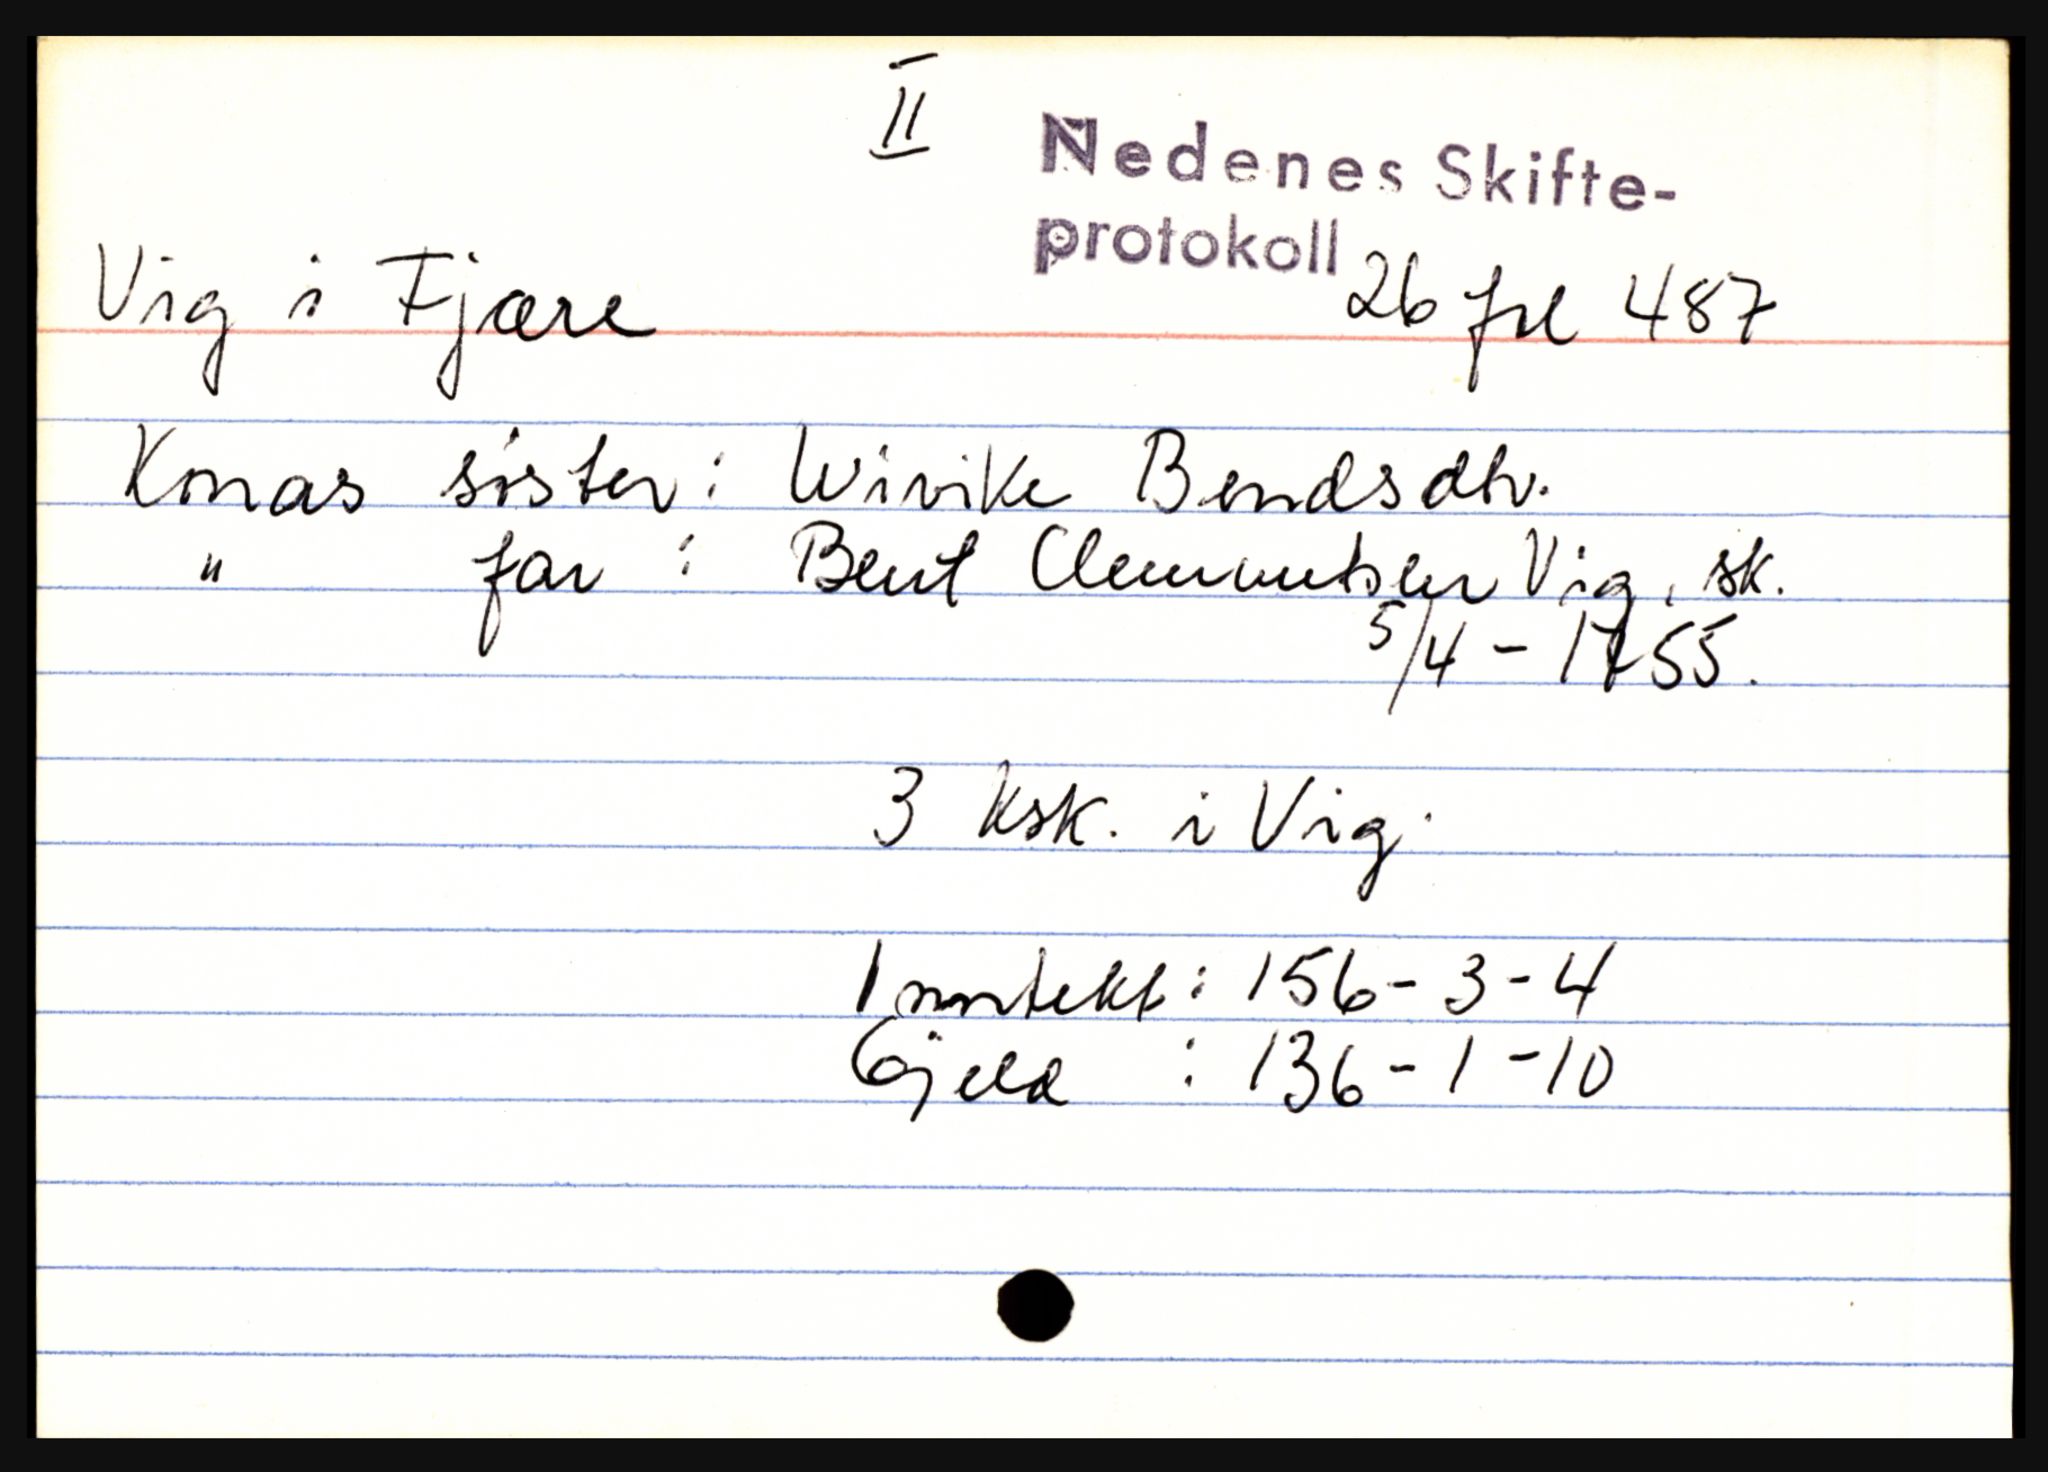 II
Nedenes Skifte-
protokoll
Vig i Fjære 26 fol 487
Konas sister: Wivike Bendsdtr.
" far : Bent Clemmetsen Vig, sk.
5/4 - 1755.
3 ksk. i Vig.
Inntekt: 156 - 3 - 4
Gjeld : 136 - 1 - 10